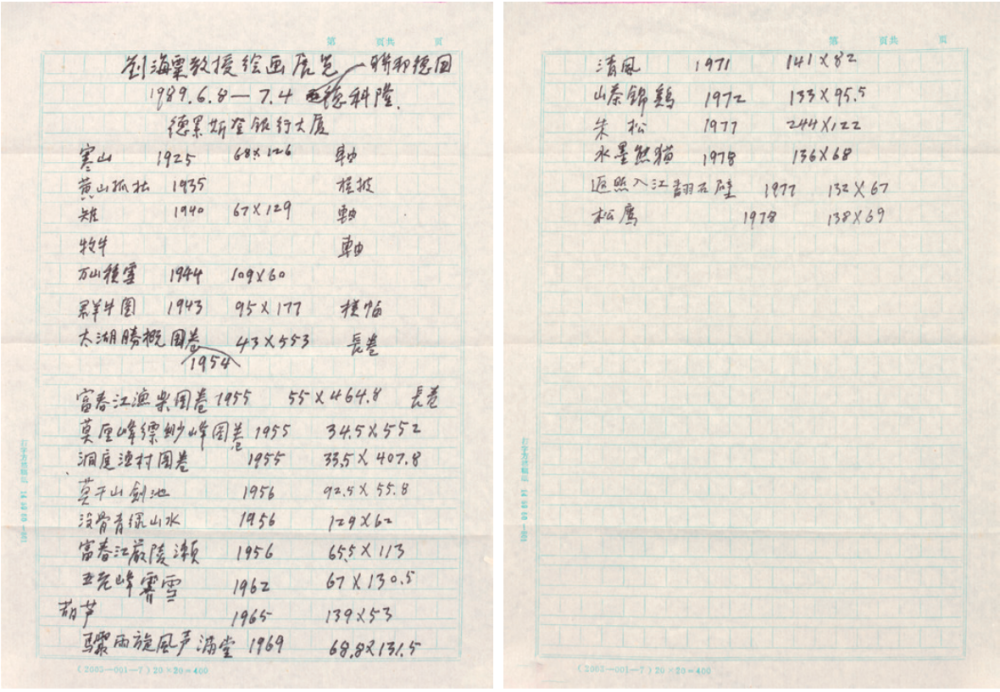 第 頁共 頁
劉海粟教授绘画展览 联邦德国
1989.6.8—7.4 德科隆
德累斯登银行大厦
寒山 1925 68×126 軸
黄山孤松 1935 横披
雉 1940 67×129 軸
牧牛 軸
万山積雪 1944 109×60
群牛图 1943 95×177 横幅
太湖勝概图卷 43×553 長卷
1954
富春江渔樂图卷 1955 55×464.8 長卷
莫厘峰缥缈峰图卷 1955 34.5×552
洞庭渔村图卷 1955 33.5×407.8
莫干山剑池 1956 92.5×55.8
没骨青绿山水 1956 129×62
富春江嚴陵瀬 1956 65.5×113
五老峰霽雪 1962 67×130.5
葫芦 1965 139×53
骤雨旋风声满堂 1969 68.8×131.5
(2005—001—7)20×20=400
第 頁共 頁
清風 1971 141×82
山茶錦鷄 1972 133×95.5
朱松 1977 244×122
水墨熊猫 1978 136×68
返照入江翻石壁 1977 132×67
松鹰 1978 138×69
(2005—001—7)20×20=400